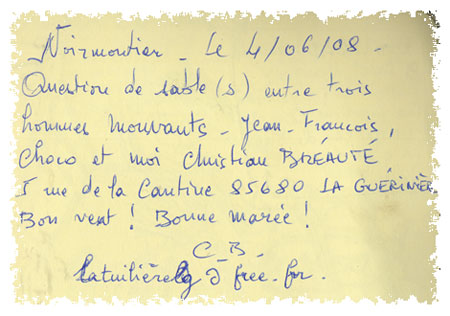 Noirmoutier - Le 4/06/08 -
Question de sable(s) entre trois
hommes mouvants - Jean-François,
Choco et moi Christian BRÉAUTÉ
5 rue de la Cantine 85680 LA GUÉRINIÈRE
Bon vent ! Bonne marée !
C_B_
latuilière @ free.fr.